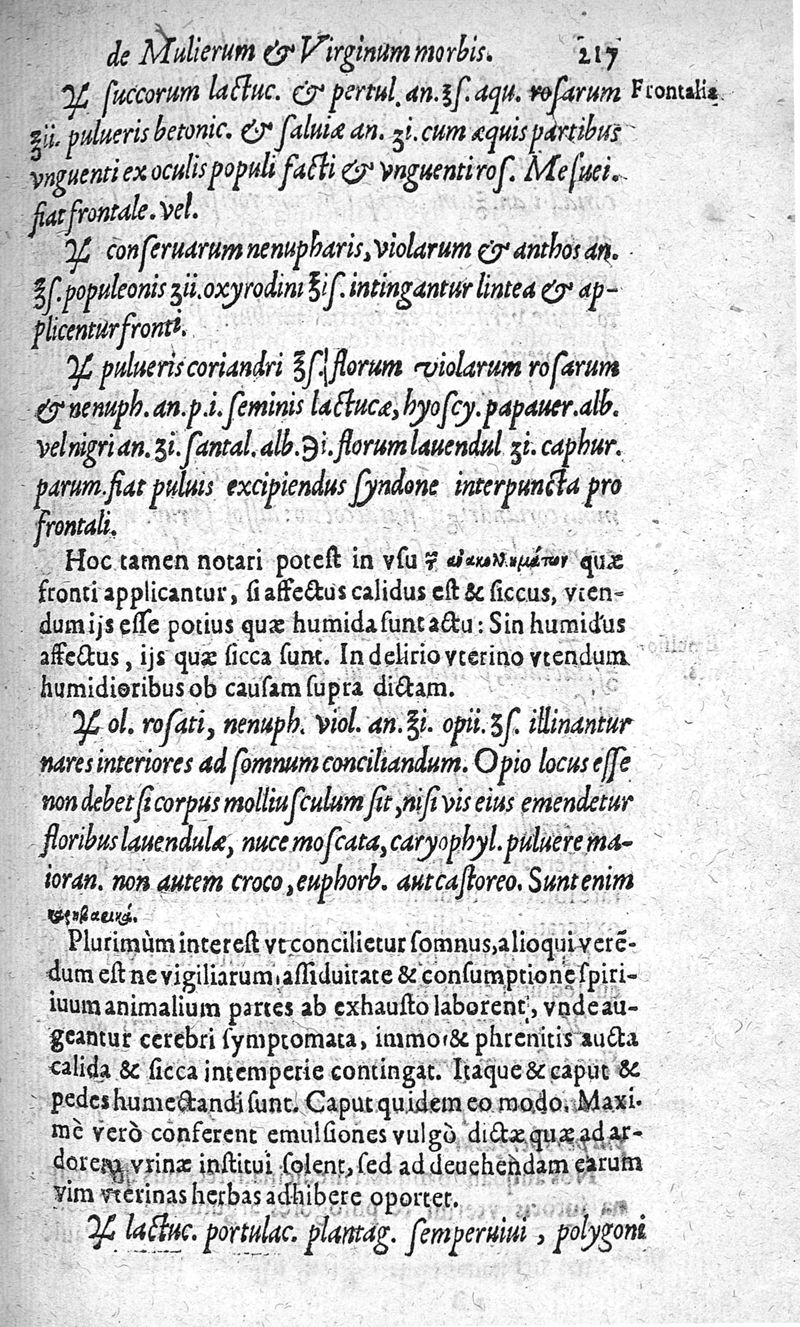 de Mulierum & Virginum morbis. 217
℞ ſuccorum lactuc. & pertul. an. ℥ſ. aqu. roſarum Frontalia
℥ii. pulueris betonic. & ſaluiæ an. ʒi. cum æquis partibus
vnguenti ex oculis populi facti & vnguenti roſ. Meſuei.
fiat frontale. vel.
℞ conſeruarum nenupharis, violarum & anthos an.
℥ſ. populeonis ʒii. oxyrodini ℥iſ. intingantur lintea & ap-
plicentur fronti.
℞ pulueris coriandri ℥ſ. florum violarum roſarum
& nenuph. an. p. i. ſeminis lactucæ, hyoſcy. papauer. alb.
vel nigri an. ʒi. ſantal. alb. ℈i. florum lauendul ʒi. caphur.
parum. fiat puluis excipiendus ſyndone interpuncta pro
frontali.
Hoc tamen notari poteſt in vſu quæ
fronti applicantur, ſi affectus calidus eſt & ſiccus, vten-
dum ijs eſſe potius quæ humida ſunt actu: Sin humidus
affectus, ijs quæ ſicca ſunt. In delirio vterino vtendum
humidioribus ob cauſam ſupra dictam.
℞ ol. roſati, nenuph. viol. an. ℥i. opii. ʒſ. illinantur
nares interiores ad ſomnum conciliandum. Opio locus eſſe
non debet ſi corpus molliuſculum ſit, niſi vis eius emendetur
floribus lauendulæ, nuce moſcata, caryophyl. puluere ma-
ioran. non autem croco, euphorb. aut caſtoreo. Sunt enim
Plurimùm intereſt vt concilietur ſomnus, alioqui verē-
dum eſt ne vigiliarum aſſiduitate & conſumptione ſpiri-
iuum animalium partes ab exhauſto laborent, vnde au-
geantur cerebri ſymptomata, immo & phrenitis aucta
calida & ſicca intemperie contingat. Itaque & caput &
pedes humectandi ſunt. Caput quidem eo modo. Maxi-
mè verò conferent emulſiones vulgò dictæ quæ ad ar-
dorem vrinæ inſtitui ſolent, ſed ad deuehendam earum
vim vterinas herbas adhibere oportet.
℞ lactuc. portulac. plantag. ſemperuiui, polygoni